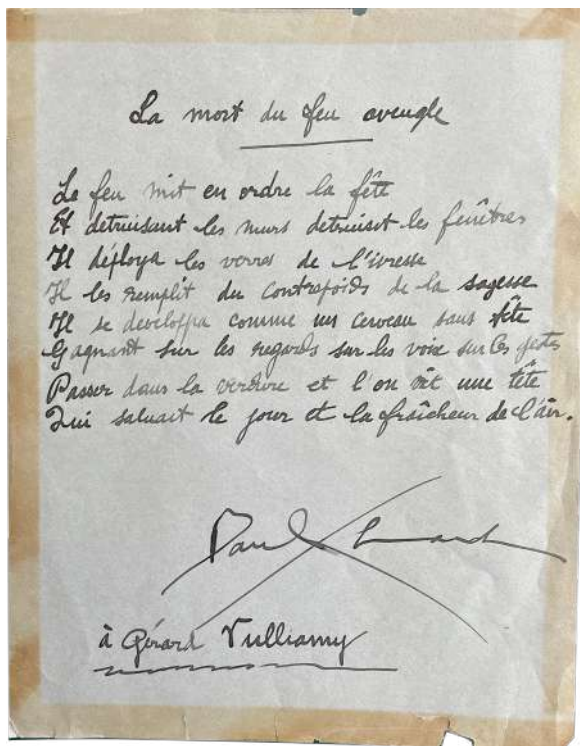 La mort du feu aveugle
Le feu mit en ordre la fête
Et détruisant les murs détruisit les fenêtres
Il déploya les verres de l'ivresse
Il les remplit du contrepoids de la sagesse
Il se developpa comme un cerveau sans tête
Gagnant sur les regards sur les voix sur les gestes
Passer dans la verdure et l'on vit une tête
Qui saluait le jour et la fraîcheur de l'air.
Paul Eluard
à Gérard Vulliamy